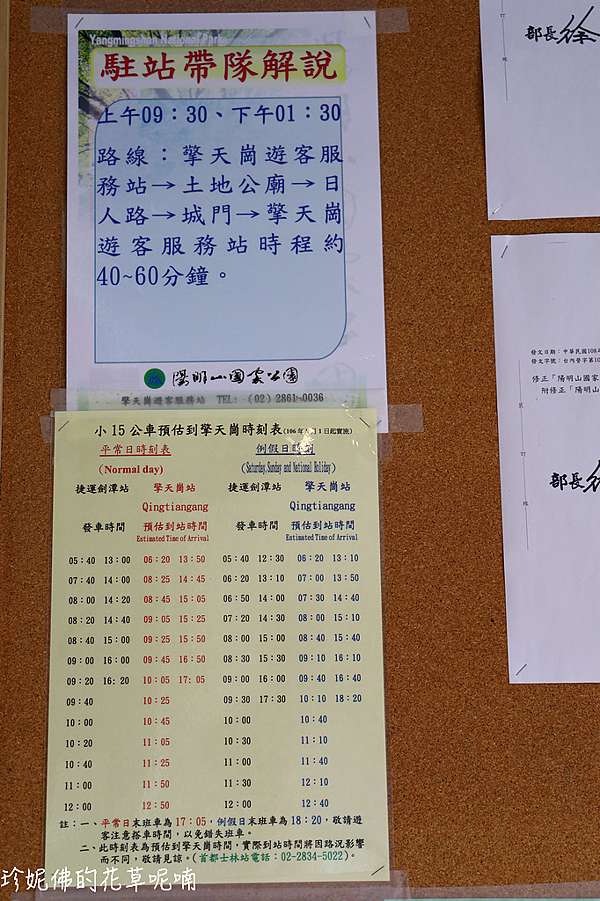 Yangmingshan National Park
駐站帶隊解說
上午09：30、下午01：30
路線：擎天崗遊客服
務站→土地公廟→日
人路→城門→擎天崗
遊客服務站時程約
40~60分鐘。
陽明山國家公園
擎天崗遊客服務站 TEL: (02) 2861-0036
小15公車預估到擎天崗時刻表(106年 月1日起實施)
平常日時刻表 例假日時刻
(Normal day) (Saturday,Sunday and National Holiday)
捷運劍潭站 擎天崗站 捷運劍潭站 擎天崗站
Qingtiangang Qingtiangang
發車時間 預估到站時間 發車時間 預估到站時間
Estimated Time of Arrival Estimated Time of Arrival
05：40 13：00 06：20 13：50 05：40 12：30 06：20 13：10
07：40 14：00 08：25 14：45 06：20 13：10 07：00 13：50
08：00 14：20 08：45 15：05 06：50 14：00 07：30 14：40
08：20 14：40 09：05 15：25 07：20 14：30 08：00 15：10
08：40 15：00 09：25 15：50 08：00 15：00 08：40 15：40
09：00 16：00 09：45 16：50 08：30 15：30 09：10 16：10
09：20 16：20 10：05 17：05 09：00 16：00 09：40 16：40
09：40 10：25 09：30 17：30 10：10 18：20
10：00 10：45 10：00 10：40
10：20 11：05 10：30 11：10
10：40 11：25 11：00 11：40
11：00 11：50 11：30 12：10
12：00 12：50 12：00 12：40
註：一、平常日末班車為17：05，例假日末班車為18：20，敬請遊
客注意搭車時間，以免錯失班車。
二、此時刻表為預估到擎天崗時間，實際到站時間將因路況影響
而不同，敬請見諒。(首都士林站電話：02-2834-5022)。
部長徐
發文日期：中華民國108年
發文字號：台內營字第10
修正「陽明山國家
附修正「陽明山
部長徐
珍妮佛的花草呢喃